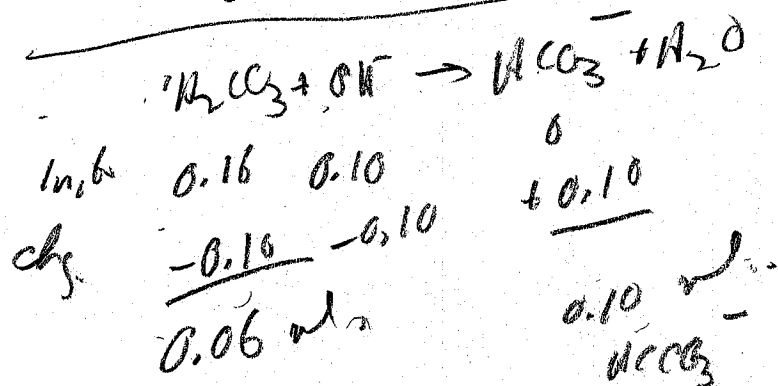 H₂CO₃ + OH⁻ → HCO₃⁻ + H₂O
Init 0.16 0.10 0
chg. -0.10 -0.10 +0.10
0.06 mol 0.10 mol
HCO₃⁻